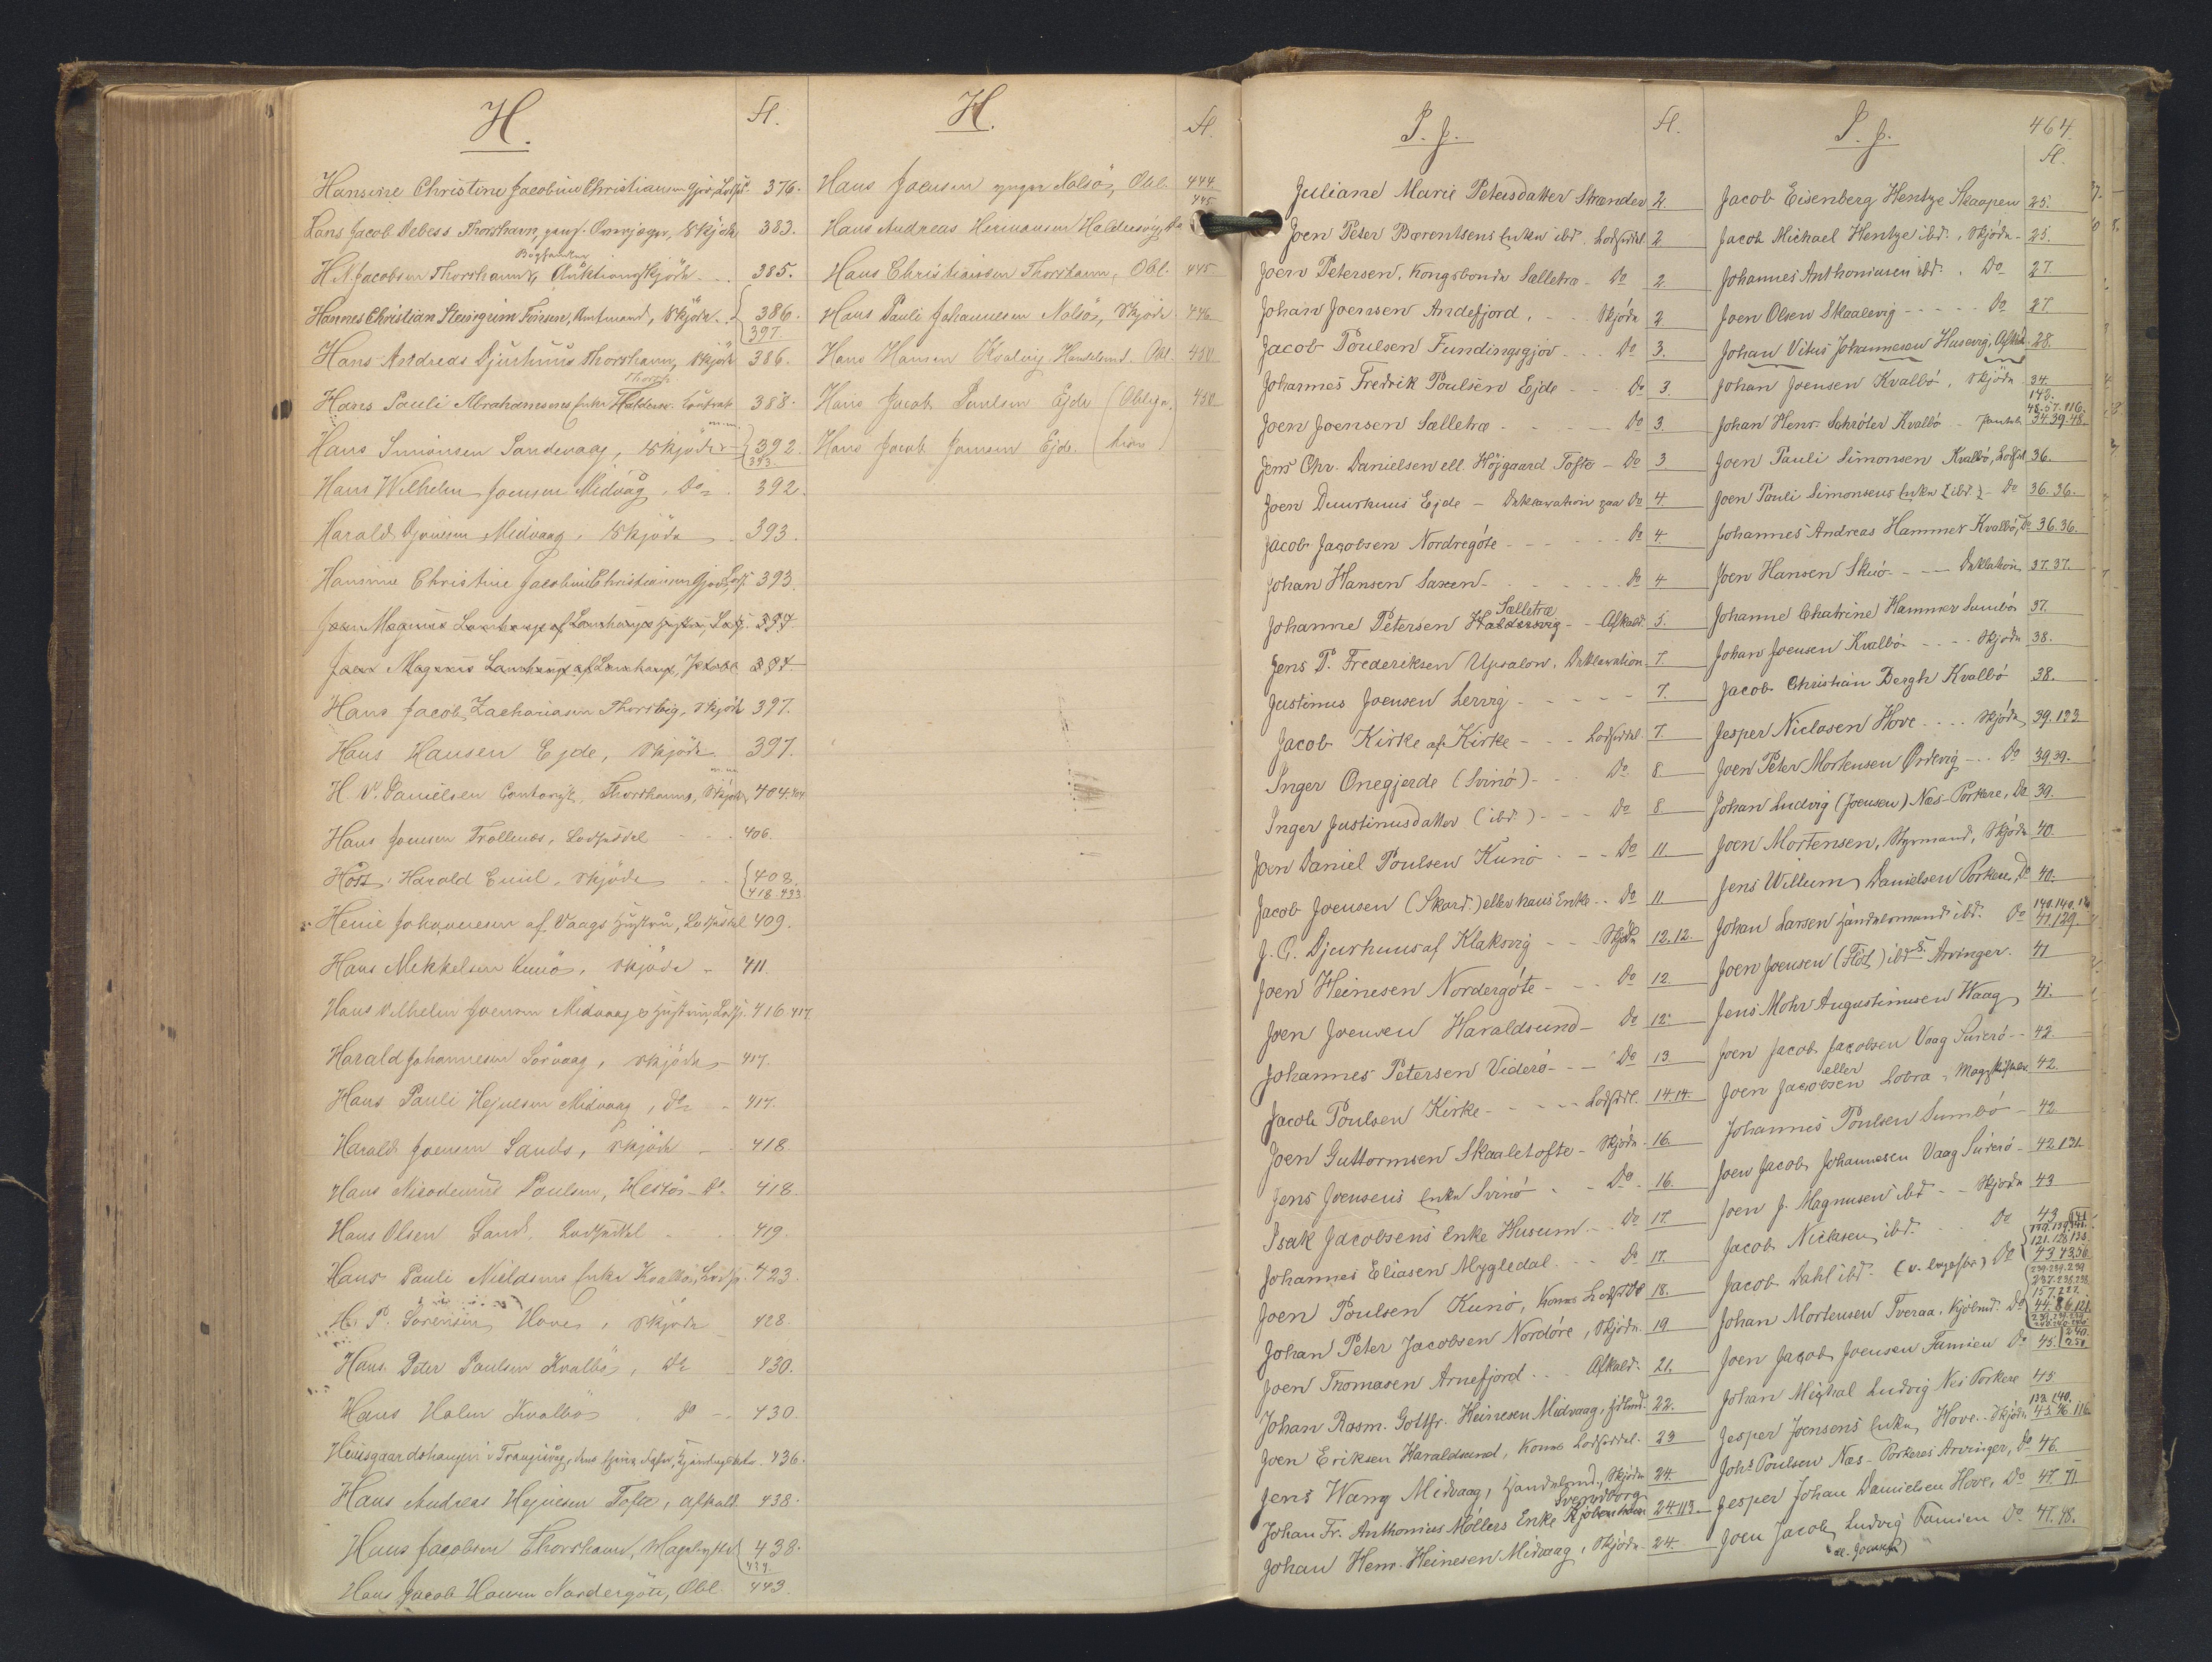 H.
Fl.
Hansine Christine Jacobine Christiansen Gjov, Lodss. 376.
Hans Jacob Debess Thorshavn, Skjöde 383.
H. N. Jacobsen Thorshavn, Auktionsskjöde 385.
Hannes Christian Steingrim Finsen, Amtmand, Skjöde 386. 397
Hans Andreas Djurhuus Thorshavn, Skjöde 386.
Hans Pauli Abrahamsens Enke Halderso. Contrakt 388.
Hans Simonsen Sandevaag, Skjöder 392. 393.
Hans Wilhelm Joensen Midvaag, Do 392.
Harald Ojvinsen Midvaag, Skjöde 393.
Hansine Christine Jacobine Christiansen Gjov, Lods. 393
Joen Magnus 394
Joen Magnus 394
Hans Jacob Zachariasen Thorsvig, Skjöde 397.
Hans Hansen Ejde, Skjöde 397.
H. V. Danielsen Thorshavn, Skjöde 404.404
Hans Joensen Trollenæs, Lodseddel 406.
Höst, Harald Emil, Skjöde 408. 418.433
Heine Johannesen af Vaags Hustru, Lodseddel 409.
Hans Mikkelsen Kunö, Skjöde 411.
Hans Vilhelm Joensen Midvaag & Hustru, Lods. 416.417.
Harald Johannesen Sörvaag, Skjöde 417.
Hans Pauli Hejnesen Midvaag, Do 417.
Harald Joensen Sands, Skjöde 418.
Hans Nicodemus Poulsen, Hestö Do 418.
Hans Olsen Sand, Lodseddel 419.
Hans Pauli Nielsens Enke Kvalbö, Lods. 423.
H. P. Sörensen Hove, Skjöde 428.
Hans Peter Poulsen Kvalbö, Do 430.
Hans Holm Kvalbö Do 430.
436.
Hans Andreas Hejnesen Tofte, Afkald. 438.
Hans Jacobsen Thorshavn, Mageskifte 438. 439.
Hans Jacob Hansen Nordergöte, Obl. 443.
H.
Fl.
Hans Joensen yngre Nolsö, Obl. 444. 445
Hans Andreas Hermansen Haldersvig, Do
Hans Christiansen Thorshavn, Obl. 445
Hans Pauli Johannesen Nolsö, Skjöde 446
Hans Hansen Kvalvig Handelsmd. Obl. 450
Hans Jacob Poulsen Ejde (Obliga- 450
Hans Jacob Joensen Ejde. (tion)
I. J.
Fl.
Juliane Marie Petersdatter Strænder 2.
Joen Peter Barentsens Enke ibd. Lodseddel. 2
Joen Petersen, Kongsbonde Selletræ Do 2.
Johan Joensen Andefjord, Skjöde 2
Jacob Poulsen Fundingsgjov Do 3.
Johannes Fredrik Poulsen Ejde Do 3.
Joen Joensen Selletræ Do 3.
Jens Chr. Danielsen ell. Höjgaard Tofte Do 3
Joen Duurhuus Ejde - Deklaration paa Do 4.
Jacob Jacobsen Nordregöte Do 4.
Johan Hansen Saxen Do 4
Selletræ
Johanne Petersen Haldersvig - Afkald. 5.
Jens P. Frederiksen Upsalon. Deklaration 7.
Justinus Joensen Lervig 7.
Jacob Kirke af Kirke - Lodseddel. 7
Inger Onegjerde (Svinö) Do 8
Inger Justinusdatter (ibd.) Do 8
Joen Daniel Poulsen Kunö Do 11
Jacob Joensen (Skard.) eller hans Enke Do 11
J. C. Djurhuus af Klaksvig - Skjöde 12.12.
Joen Heinesen Nordergöte Do 12.
Joen Joensen Haraldsund Do 12.
Johannes Petersen Viderö Do 13.
Jacob Poulsen Kirke - Lodseddel. 14.14.
Joen Guttormsen Skaaletofte - Skjöde 16.
Jens Joensens Enke Svinö Do 16.
Isak Jacobsens Enke Husum Do 17.
Johannes Eliasen Mygledal Do 17.
Joen Poulsen Kunö, Kones Lods. Do 18.
Johan Peter Jacobsen Nordöre, Skjöde 19
Joen Thomasen Arnefjord Afkald. 21.
Johan Rasm. Gottfr. Heinesen Midvaag, 22.
Joen Eriksen Haraldsund, Kones Lodseddel. 23
Jens Wang Midvaag, Handelsmd., Skjöde 24.
Svendborg
Johan Fr. Anthonius Möllers Enke Kjöbenhavn 24.113
Johan Henr. Heinesen Midvaag, Skjöde 24.
I. J.
464.
Fl.
Jacob Eisenberg Hentze Skaapen 25.
Jacob Michael Hentze ibd., Skjöde 25.
Johannes Anthoniusen ibd. Do 27.
Joen Olsen Skaalevig Do 27
Johan Vitus Johannesen Husevig, Afkald 28.
Johan Joensen Kvalbö, Skjöde 34.
Johan Henr. Schröter Kvalbö 142. 48.57.116. 34.39.48
Joen Pauli Simonsen Kvalbö, Lodsd 36.
Joen Pauli Simonsens Enke (ibd.) Do 36.36.
Johannes Andreas Hammer Kvalbö, Do 36.36.
Joen Hansen Skuö 37.37.
Johanne Chatrine Hammer Sumbö 37.
Johan Joensen Kvalbö Skjöde 38.
Jacob Christian Bergh Kvalbö 38.
Jesper Niclasen Hove Skjöde 39.123
Joen Peter Mortensen Ördevig Do 39.39.
Johan Ludvig (Joensen) Næs-Porkere, Do 39.
Joen Mortensen, Styrmand, Skjöde 40.
Jens Willum Danielsen Porkere, Do 40.
Johan Larsen Handelsmand ibd. Do 41.129.
Joen Joensen (Flöt) ibds. Arvinger. 41
Jens Mohr Augustinusen Waag 41.
Joen Jacob Jacobsen Vaag Suderö 42.
eller
Joen Jacobsen Lobra, Mageskifte 42.
Johannes Poulsen Sumbö 42.
Joen Jacob Johannesen Vaag Suderö 42.131.
Joen J. Magnusen ibd. Skjöde 43
Jacob Niclasen ibd. Do 43
Jacob Dahl ibd. Do 43.43.56.
Johan Mortensen Tveraa, Kjöbmd. Do 44.86.121.
Joen Jacob Joensen Famien Do 45.
Johan Michal Ludvig Nes Porkere 45.
Jesper Joensens Enke, Hove. Skjöde 123.140. 45.46.116.
Johs. Poulsen Næs-Porkeres Arvinger, Do 46.
Jesper Johan Danielsen Hove, Do 47.71
Joen Jacob Ludvig Famien Do 47.48.
(el. Joensen)